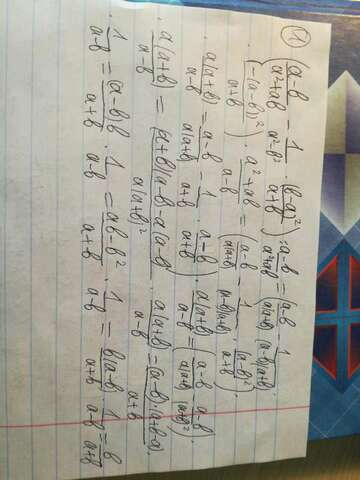 ① ((a-b)/(a²+ab) - 1/(a²-b²) · (b-a)²/(a+b)) : (a-b)/(a²+ab) = ((a-b)/(a(a+b)) - 1/((a-b)(a+b)) ·
· (-(a-b))²/(a+b)) · (a²+ab)/(a-b) = ((a-b)/(a(a+b)) - 1/((a-b)(a+b)) · (a-b)²/(a+b)) ·
· a(a+b)/(a-b) = ((a-b)/(a(a+b)) - 1/(a+b) · (a-b)/(a+b)) · a(a+b)/(a-b) = ((a-b)/(a(a+b)) - (a-b)/(a+b)²) ·
· a(a+b)/(a-b) = ((a+b)(a-b)-a(a-b))/(a(a+b)²) · a(a+b)/(a-b) = (a-b)(a+b-a)/(a+b) ·
· 1/(a-b) = (a-b)b/(a+b) · 1/(a-b) = (ab-b²)/(a+b) · 1/(a-b) = b(a-b)/(a+b) · 1/(a-b) = b/(a+b)